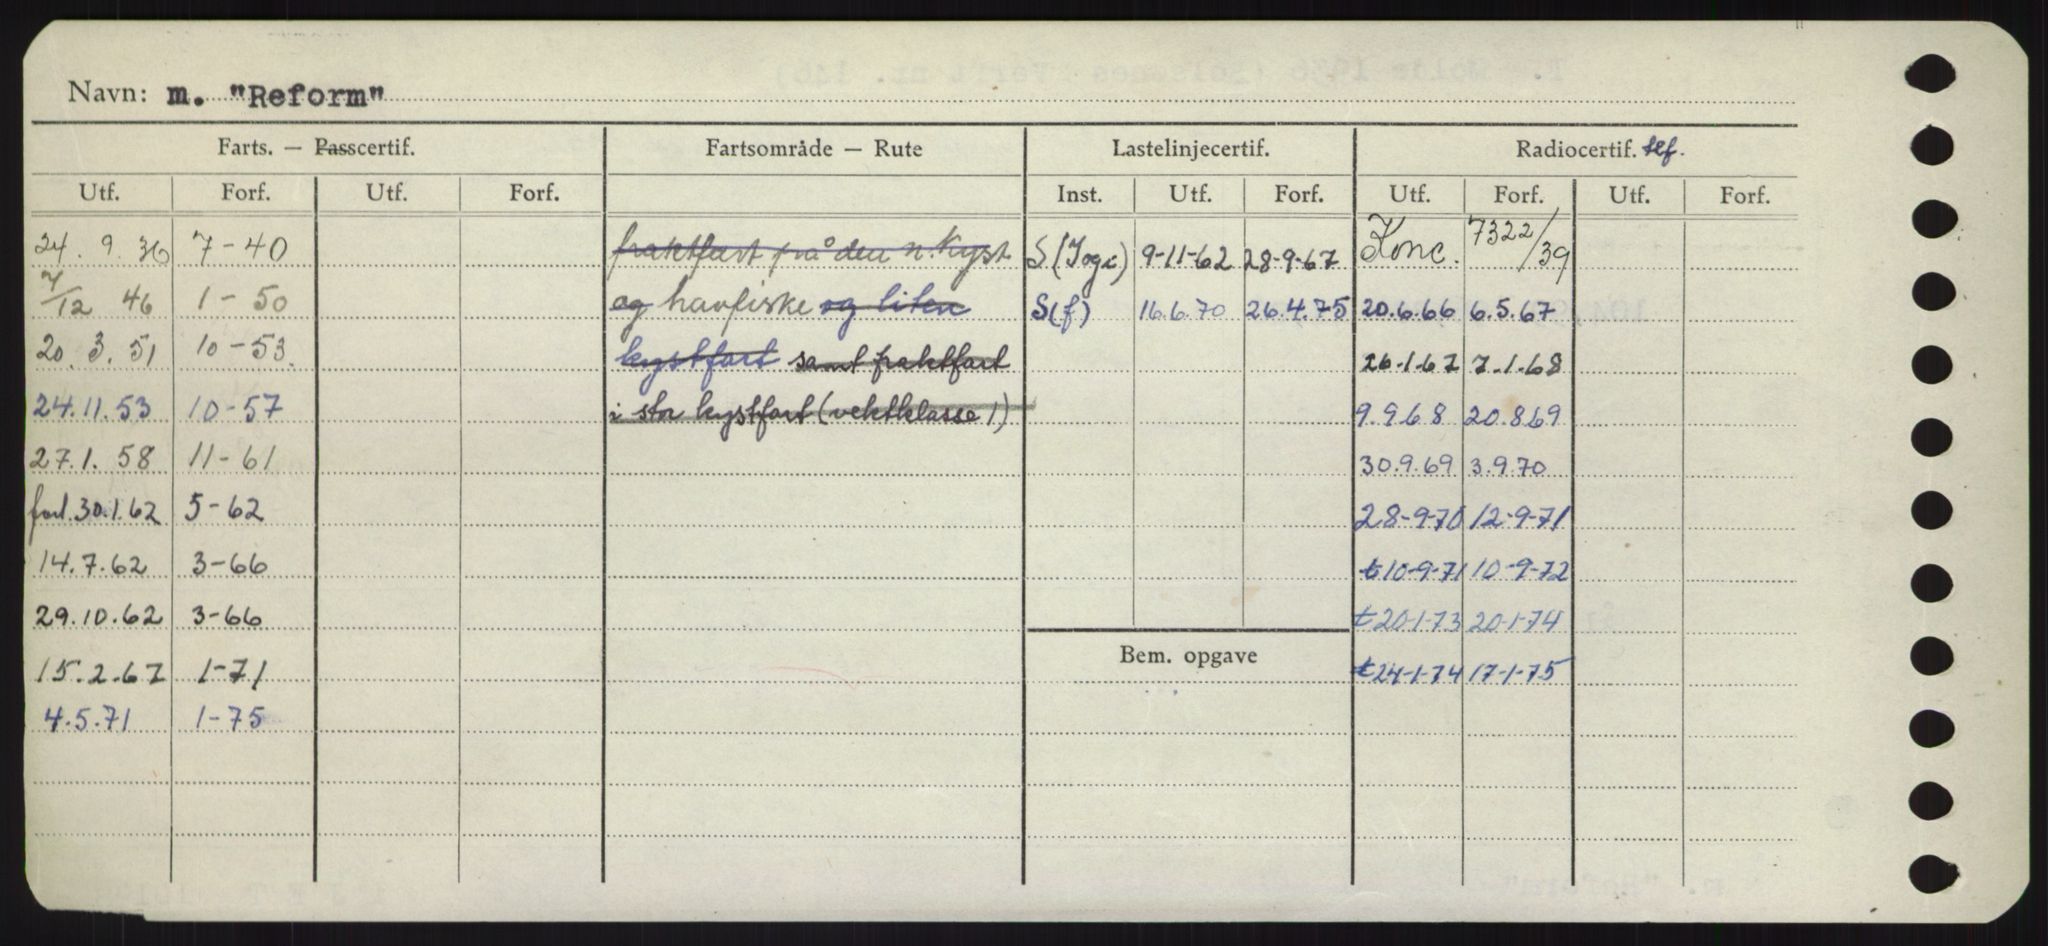 Navn: m. "Reform"
Farts. — Passcertif. Fartsområde — Rute Lastelinjecertif. Radiocertif. tlf.
Utf. Forf. Utf. Forf. Inst. Utf. Forf. Utf. Forf. Utf. Forf.
24. 9. 36 7-40 fraktfart på den n. kyst S (Jogi) 9-11-62 28-9-67 Konc. 7322/39
7/12 46 1-50 og havfiske og liten S(f) 16.6.70 26.4.75 20.6.66 6.5.67
20. 3. 51 10-53. kystfart samt fraktfart 26.1.67 7.1.68
24.11.53 10-57 i stor kystfart (vektklasse 1) 9.9.68 20.8.69
27.1. 58 11-61 30.9.69 3.9.70
forl. 30.1.62 5-62 28-9-70 12-9-71
14.7.62 3-66 t 10-9-71 10-9-72
29.10.62 3-66 t 20-1-73 20-1-74
Bem. opgave
15.2.67 1-71 t 24-1-74 17-1-75
4.5.71 1-75